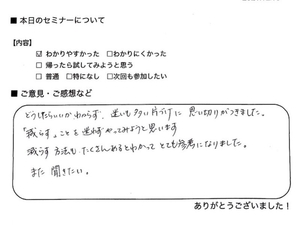 ■ 本日のセミナーについて
【内容】
☑ わかりやすかった □わかりにくかった
□ 帰ったら試してみようと思う
□ 普通 □特になし □次回も参加したい
■ ご意見・ご感想など
どうしたらいいかわからず、迷いも多い片づけに思い切りがつきました。
「減らす」ことを迷わずやってみようと思います
減らす方法もたくさんあるとわかってとても参考になりました。
また聞きたい。
ありがとうございました！